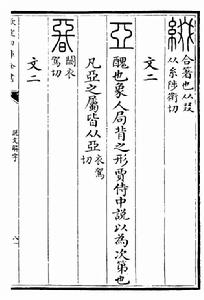 綴 合著也从叕
从糸陟衛切
文二
亞 醜也象人局背之形賈侍中說以為次第也
凡亞之屬皆从亞 衣駕
切
闕衣
駕切
文二
欽定四庫全書
說文解字